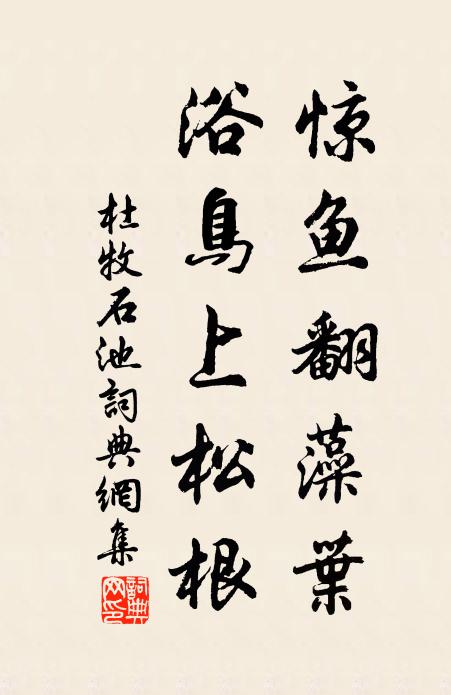 惊鱼翻藻葉
浴鳥上松根
杜牧石池詞典網集
詞典网印